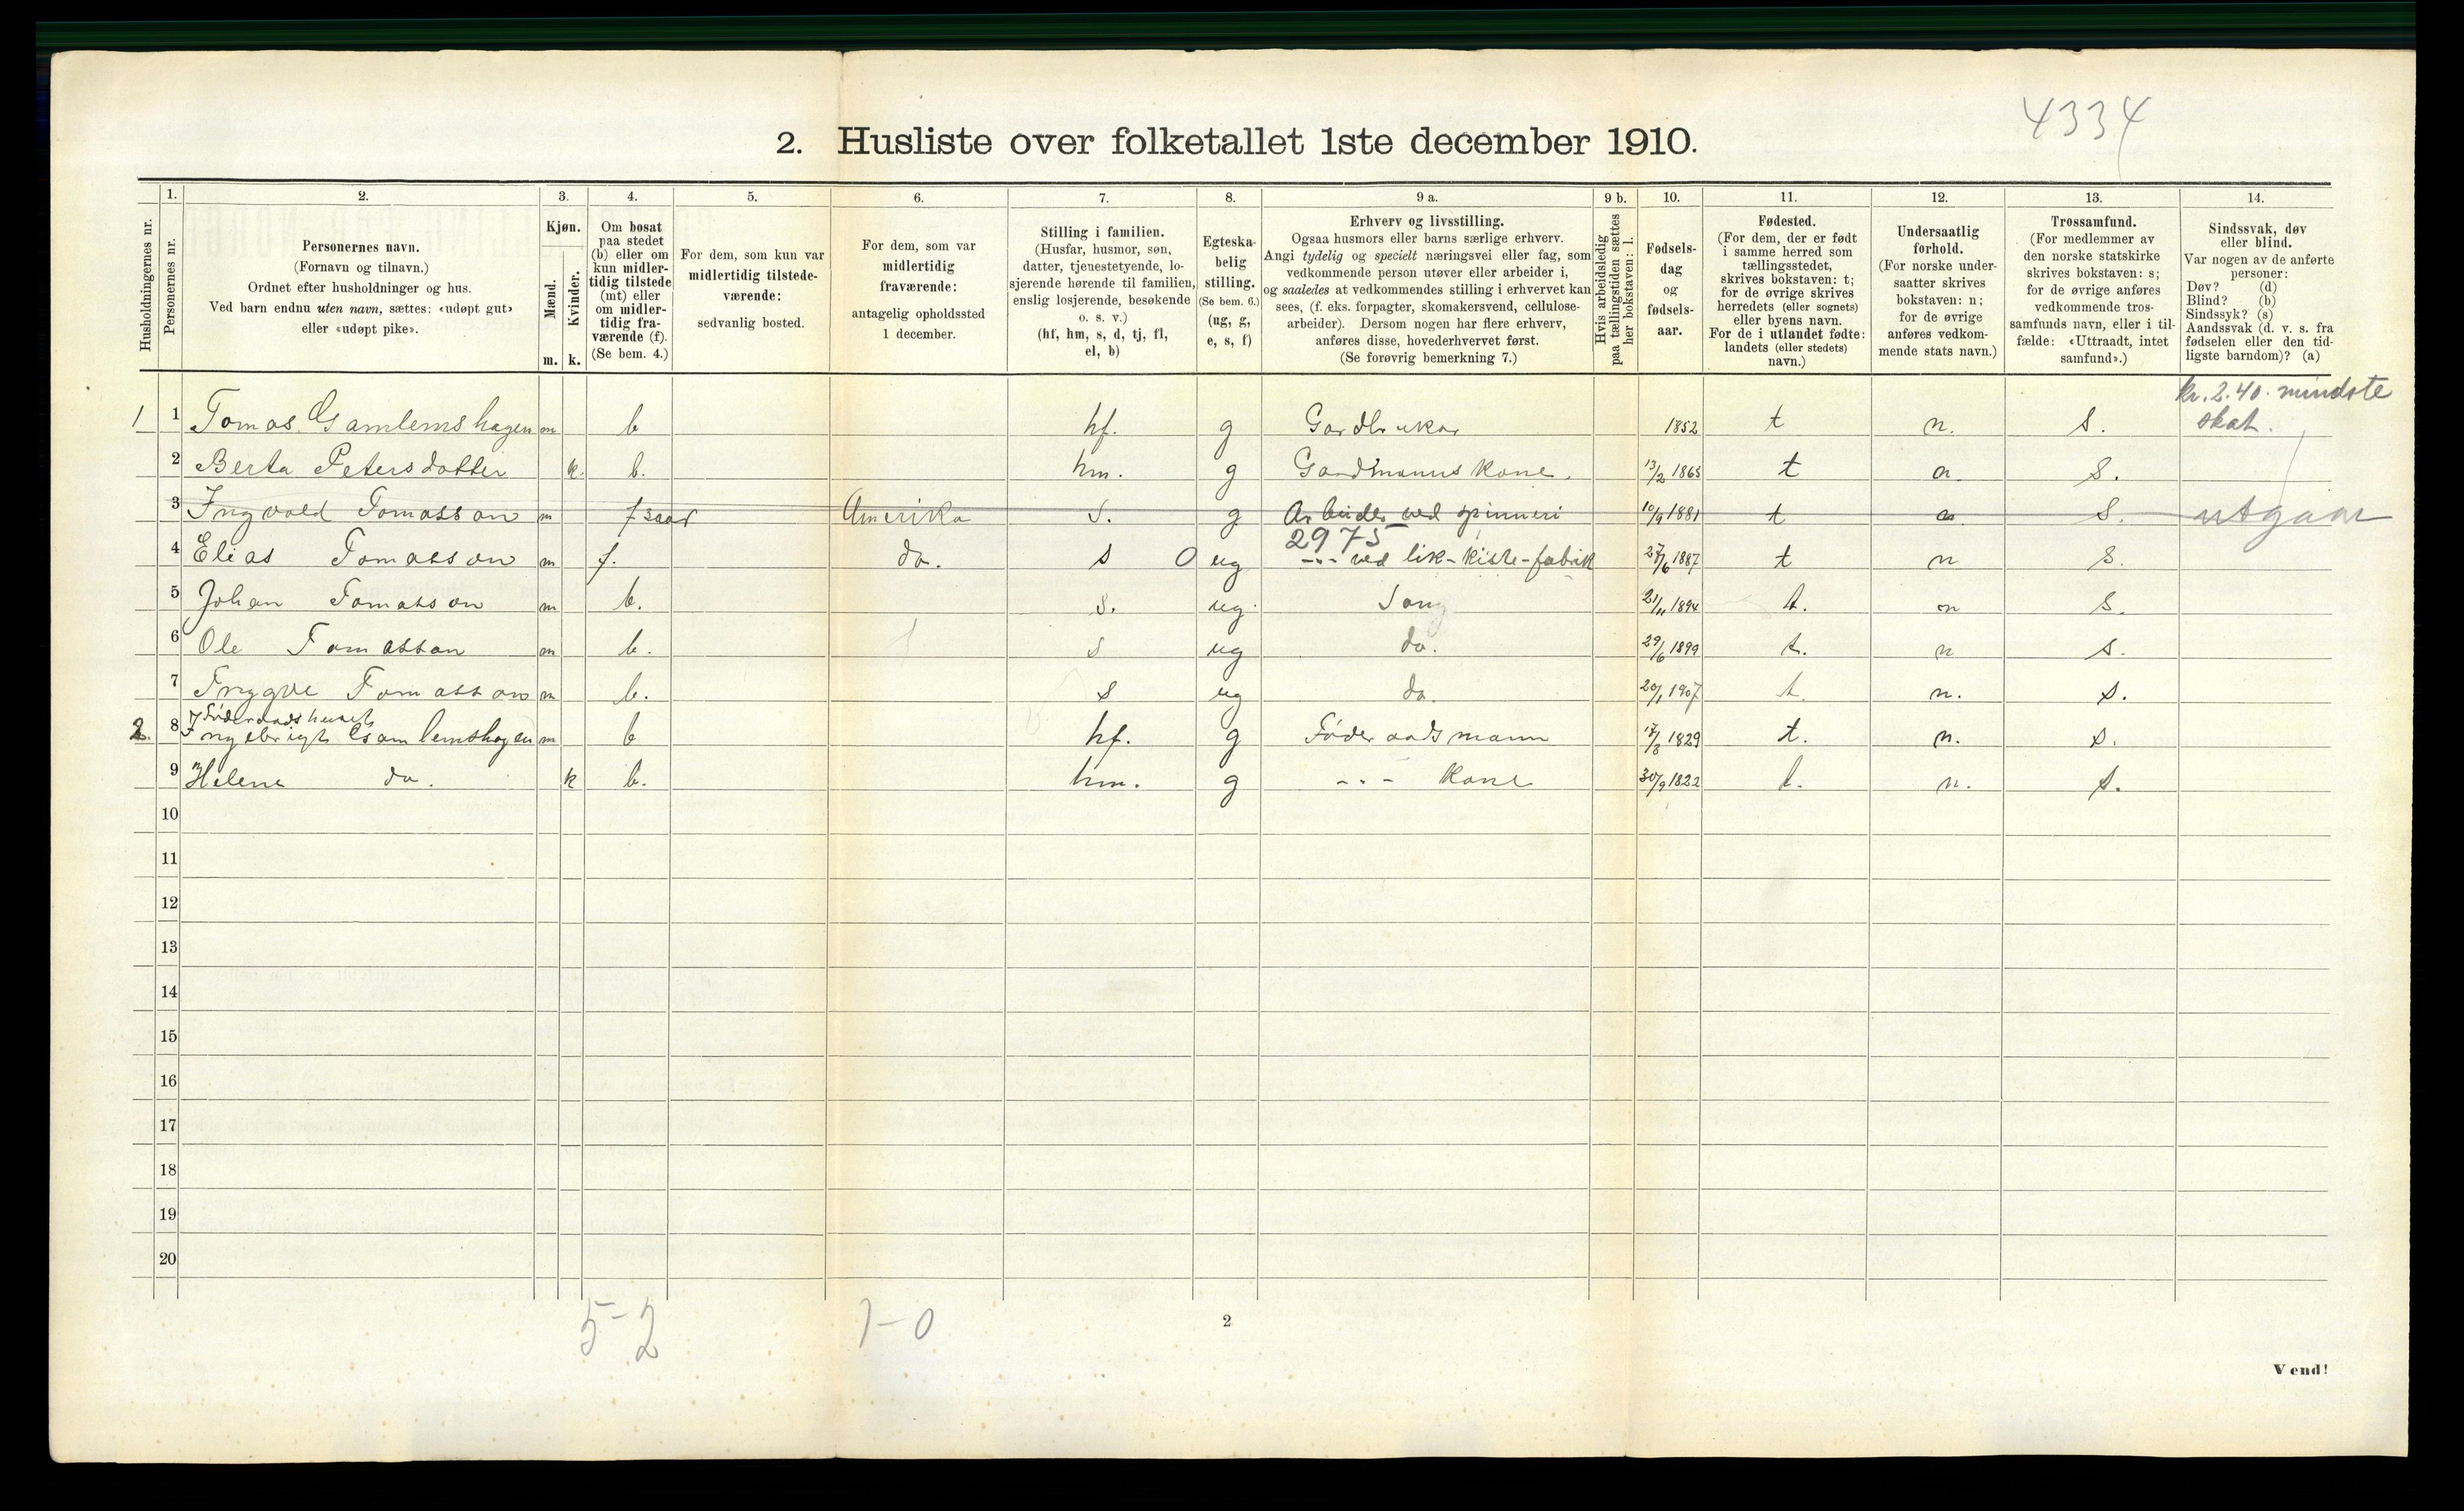 4334
2. Husliste over folketallet 1ste december 1910.
Husholdningernes nr.
1. Personernes nr.
2. Personernes navn. (Fornavn og tilnavn.) Ordnet efter husholdninger og hus. Ved barn endnu uten navn, sættes: «udøpt gut» eller «udøpt pike».
3. Kjøn. Mænd. m. Kvinder. k.
4. Om bosat paa stedet (b) eller om kun midlertidig tilstede (mt) eller om midlertidig fraværende (f). (Se bem. 4.)
5. For dem, som kun var midlertidig tilstedeværende: sedvanlig bosted.
6. For dem, som var midlertidig fraværende: antagelig opholdssted 1 december.
7. Stilling i familien. (Husfar, husmor, søn, datter, tjenestetyende, losjerende hørende til familien, enslig losjerende, besøkende o. s. v.) (hf, hm, s, d, tj, fl, el, b)
8. Egteskabelig stilling. (Se bem. 6.) (ug, g, e, s, f)
9 a. Erhverv og livsstilling. Ogsaa husmors eller barns særlige erhverv. Angi tydelig og specielt næringsvei eller fag, som vedkommende person utøver eller arbeider i, og saaledes at vedkommendes stilling i erhvervet kan sees, (f. eks. forpagter, skomakersvend, cellulosearbeider). Dersom nogen har flere erhverv, anføres disse, hovederhvervet først. (Se forøvrig bemerkning 7.)
9 b. Hvis arbeidsledig paa tællingstiden sættes her bokstaven: l.
10. Fødselsdag og fødselsaar.
11. Fødested. (For dem, der er født i samme herred som tællingsstedet, skrives bokstaven: t; for de øvrige skrives herredets (eller sognets) eller byens navn. For de i utlandet fødte: landets (eller stedets) navn.)
12. Undersaatlig forhold. (For norske undersaatter skrives bokstaven: n; for de øvrige anføres vedkommende stats navn.)
13. Trossamfund. (For medlemmer av den norske statskirke skrives bokstaven: s; for de øvrige anføres vedkommende trossamfunds navn, eller i tilfælde: «Uttraadt, intet samfund».)
14. Sindssvak, døv eller blind. Var nogen av de anførte personer: Døv? (d) Blind? (b) Sindssyk? (s) Aandssvak (d. v. s. fra fødselen eller den tidligste barndom)? (a)
kr. 2.40. mindste skat.
1 1 Tomas Gamlemshagen m b hf. g Gardbrukar 1852 t n. s.
2 Berta Petersdotter k. b. hm. g Gardmanns kone. 13/2 1863 t n. s.
3 Ingvald Tomasson m f 3 aar Amerika s. g Arbeider ved spinneri 10/9 1881 t n s. utgaar
2975
4 Elias Tomasson m f. do. s 0 ug -"- ved lik-kiste-fabrik 27/6 1887 t n s.
5 Johan Tomasson m b. s. ug. Søn 21/11 1894 t. n s.
6 Ole Tomasson m b. s ug do. 29/6 1899 t. n s.
7 Trygve Tomasson m b. s ug do. 20/1 1907 t. n. s.
I Föderaadshuset
2. 8 Ingebrigt Gamlemshagen m b hf. g Föderaadsmann 17/8 1829 t. n. s.
9 Helene do. k b. hm. g -"- kone 30/9 1822 t. n. s.
10
11
12
13
14
15
16
17
18
19
20
5-2 1-0
2
Vend!